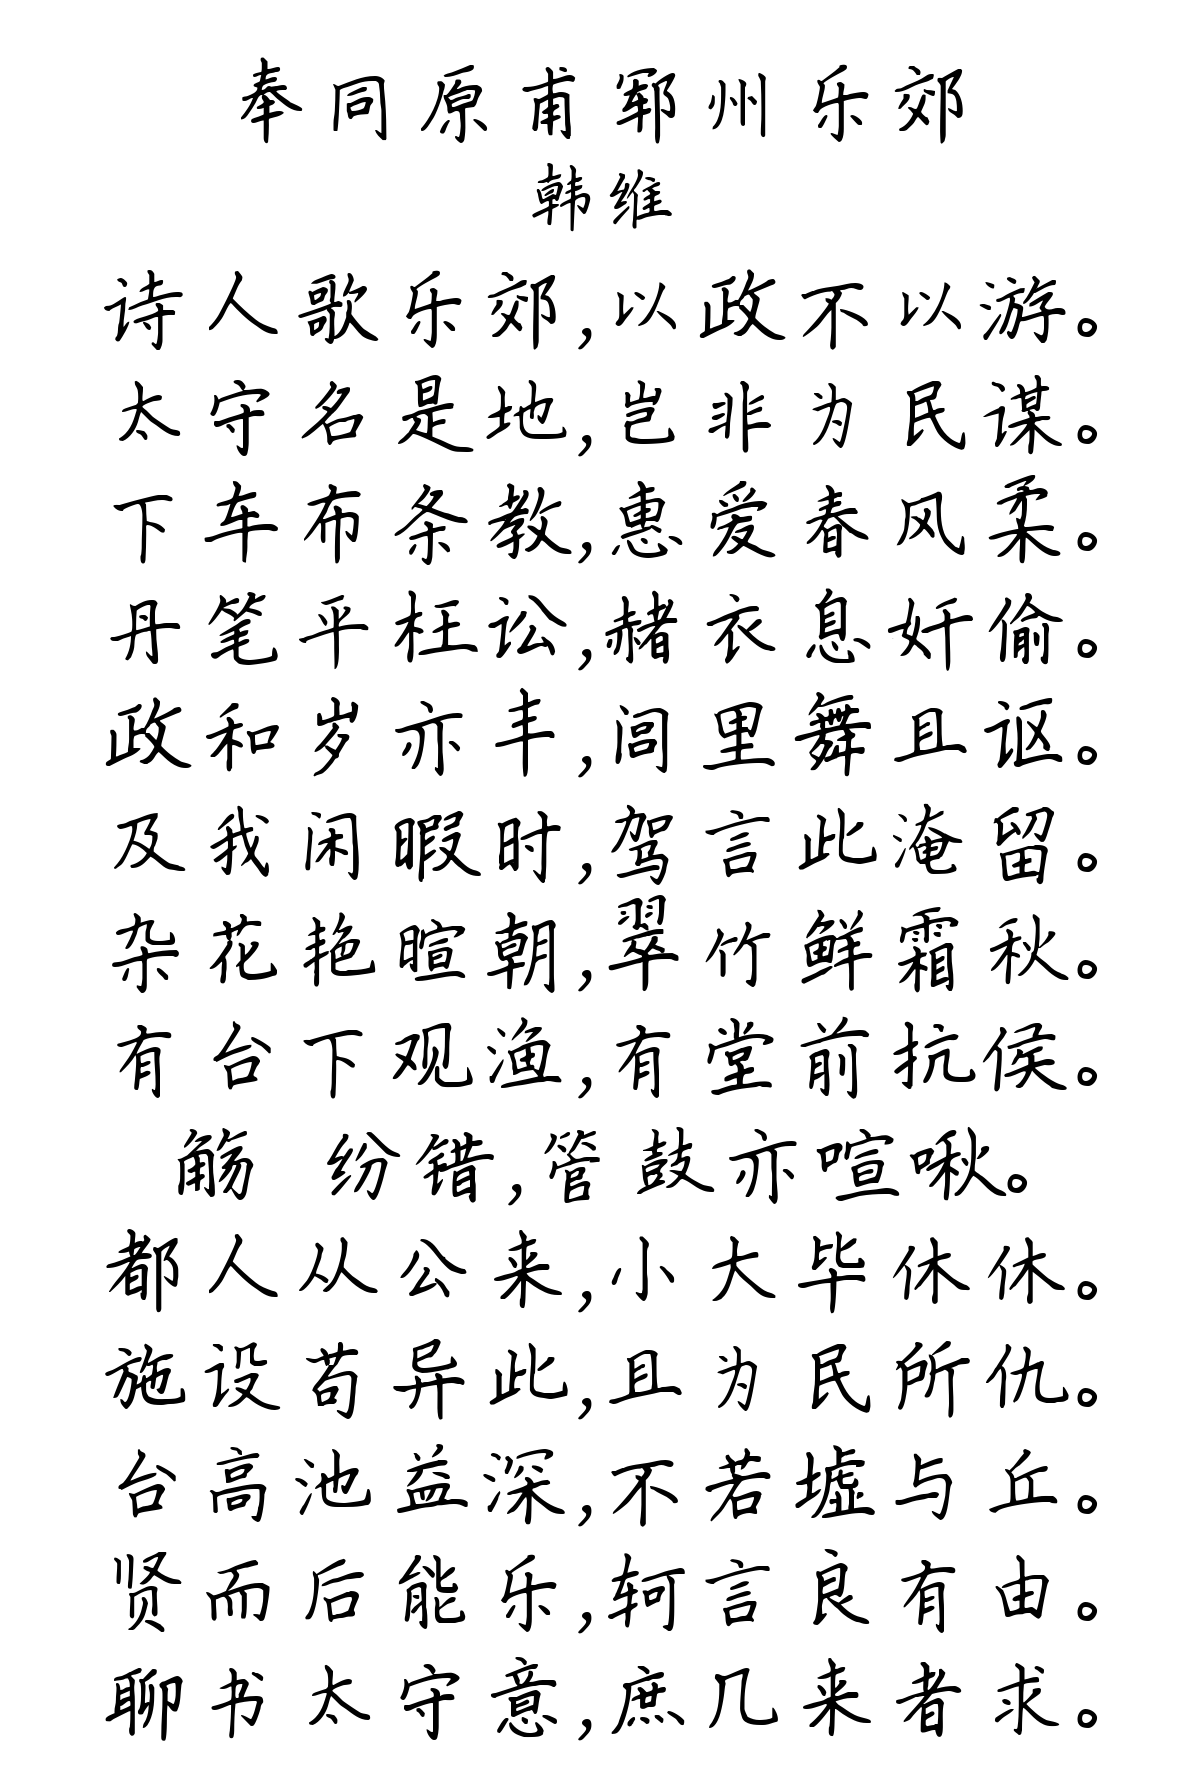 奉同原甫郓州乐郊
韩维
诗人歌乐郊,以政不以游。
太守名是地,岂非为民谋。
下车布条教,惠爱春风柔。
丹笔平枉讼,赭衣息奸偷。
政和岁亦丰,闾里舞且讴。
及我闲暇时,驾言此淹留。
杂花艳暄朝,翠竹鲜霜秋。
有台下观渔,有堂前抗侯。
觞 纷错,管鼓亦喧啾。
都人从公来,小大毕休休。
施设苟异此,且为民所仇。
台高池益深,不若墟与丘。
贤而后能乐,轲言良有由。
聊书太守意,庶几来者求。